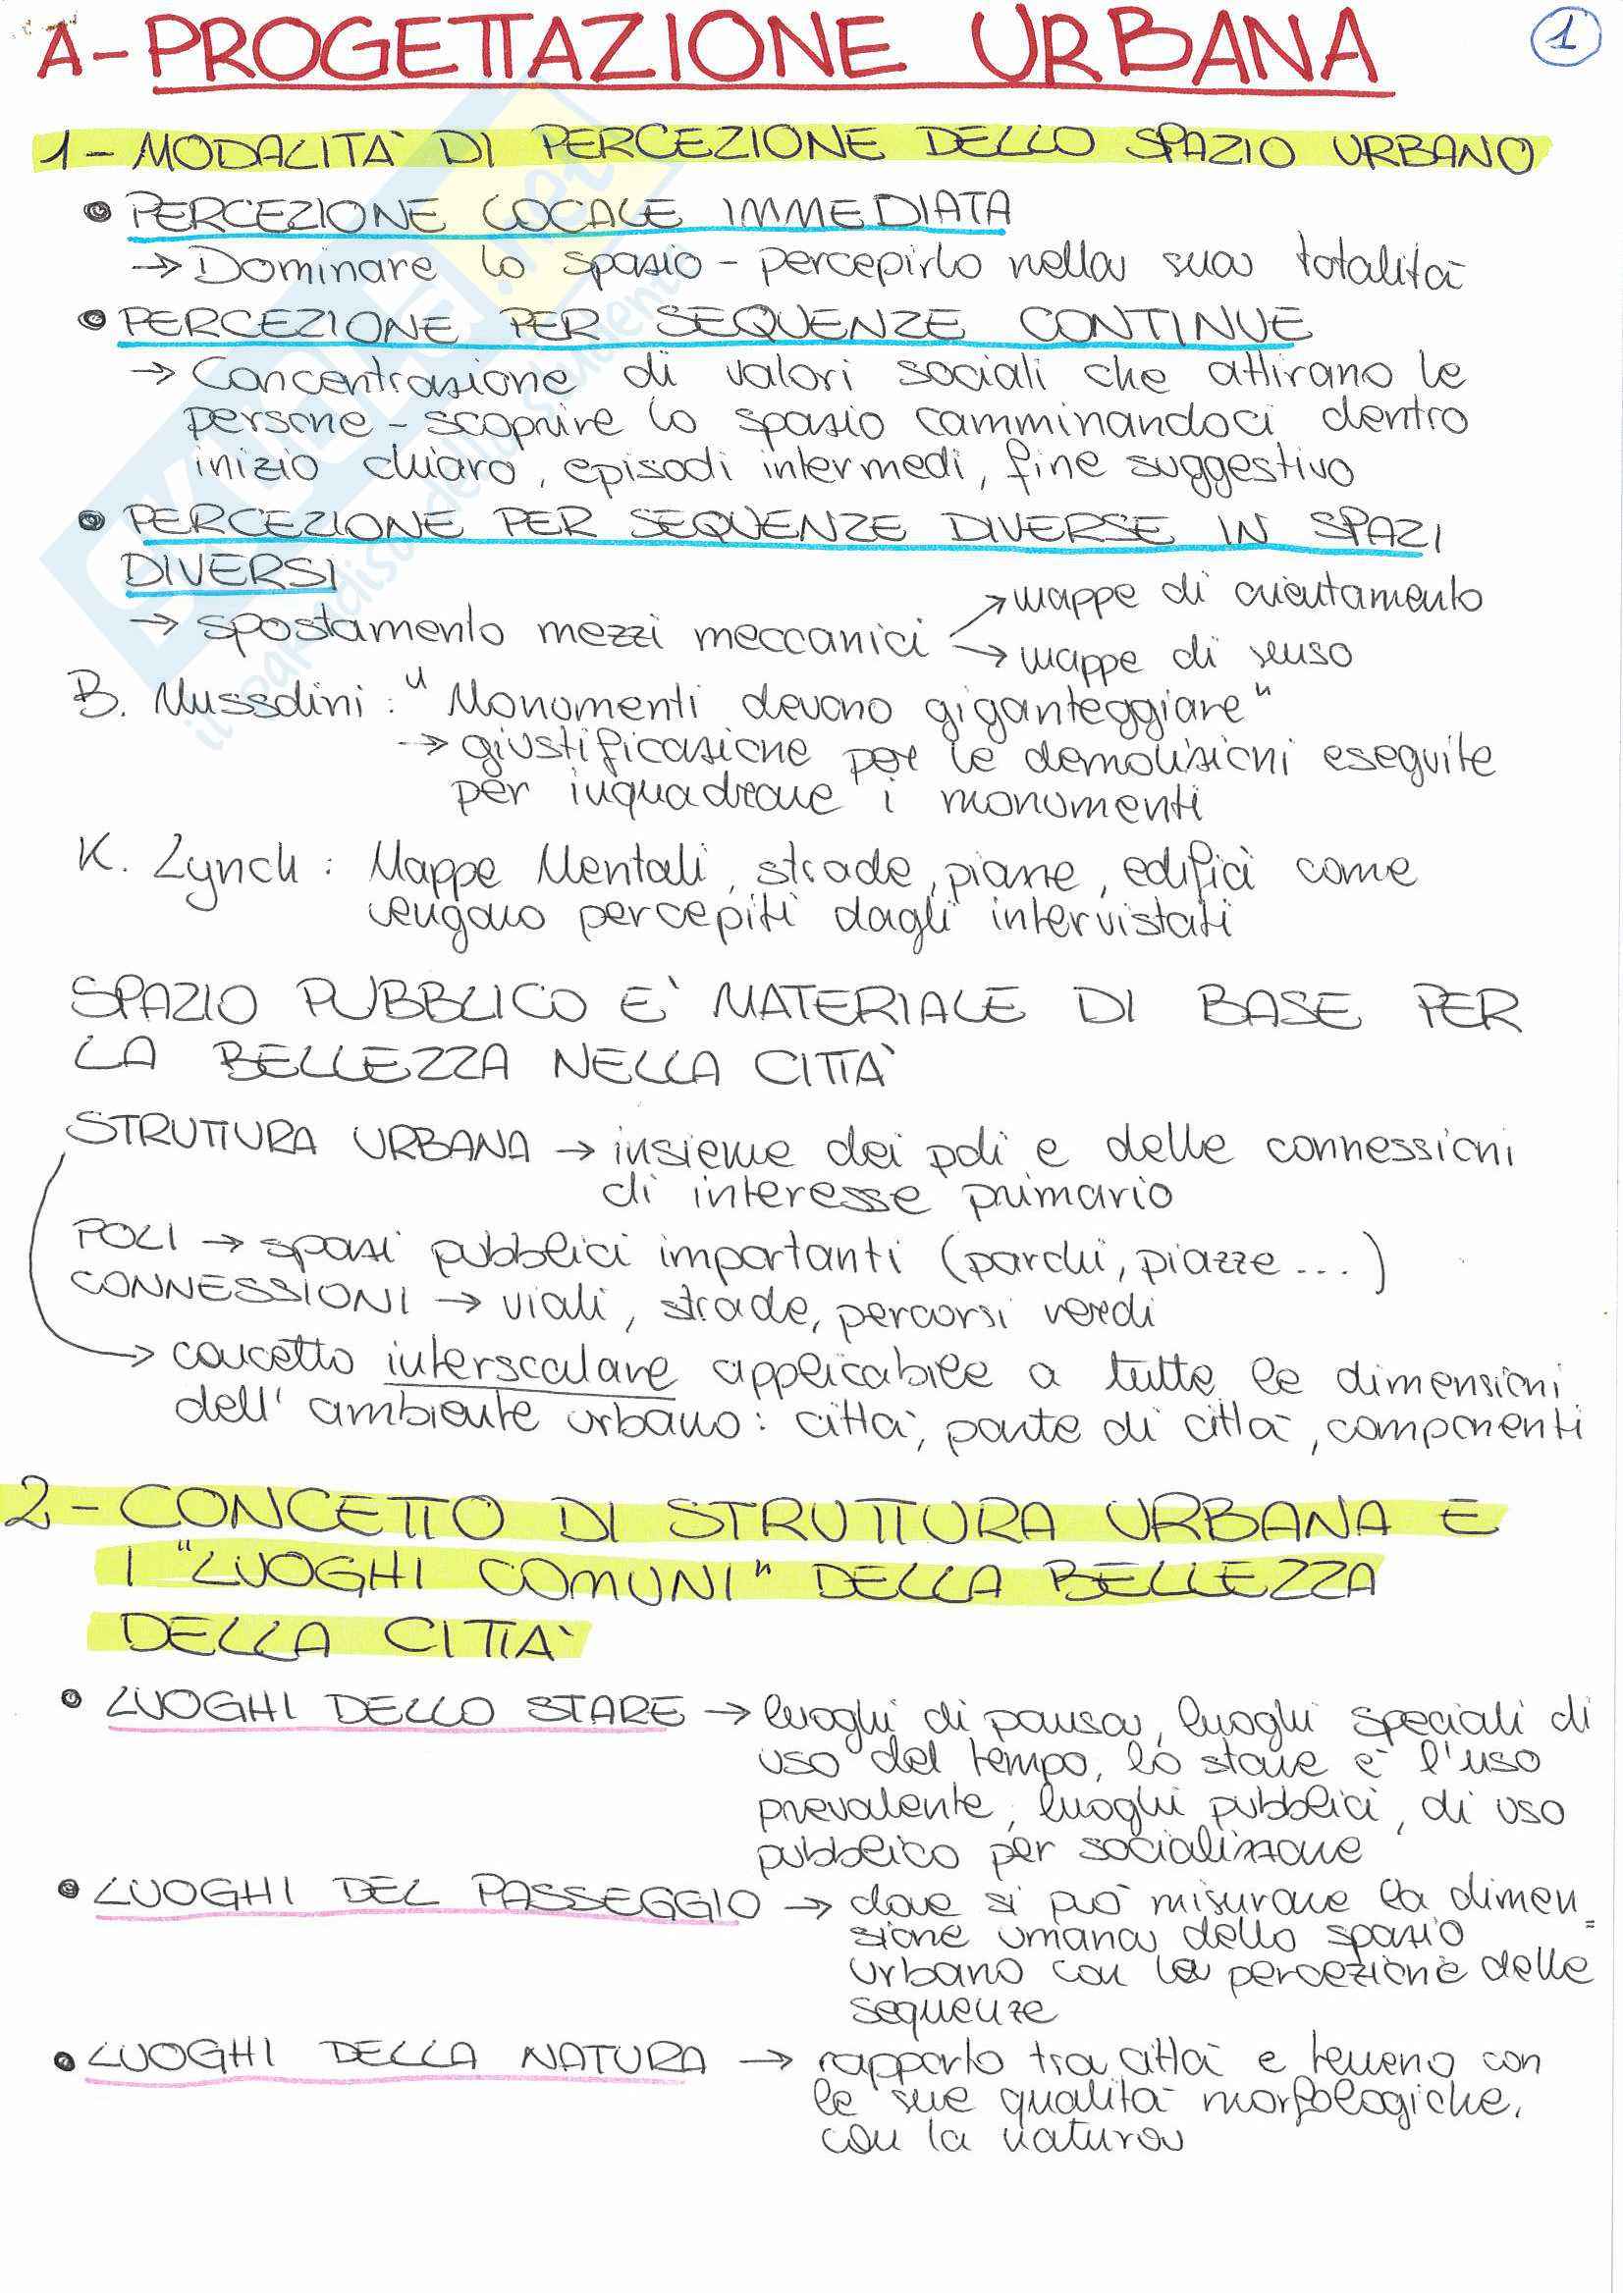 A- PROGETTAZIONE URBANA
1
1 - MODALITÀ DI PERCEZIONE DELLO SPAZIO URBANO
• PERCEZIONE LOCALE IMMEDIATA
→ Dominare lo spazio - percepirlo nella sua totalità
• PERCEZIONE PER SEQUENZE CONTINUE
→ Concentrazione di valori sociali che attirano le
persone - scoprire lo spazio camminandoci dentro
inizio chiaro, episodi intermedi, fine suggestivo
• PERCEZIONE PER SEQUENZE DIVERSE IN SPAZI
DIVERSI
→ spostamento mezzi meccanici
→ mappe di orientamento
→ mappe di senso
B. Mussolini: "Monumenti devono giganteggiare"
→ giustificazione per le demolizioni eseguite
per inquadrare i monumenti
K. Lynch: Mappe Mentali, strade, piazze, edifici come
vengono percepiti dagli intervistati
SPAZIO PUBBLICO E' MATERIALE DI BASE PER
LA BELLEZZA NELLA CITTÀ
STRUTTURA URBANA → insieme dei poli e delle connessioni
di interesse primario
POLI → spazi pubblici importanti (parchi, piazze...)
CONNESSIONI → viali, strade, percorsi verdi
→ concetto interscalare applicabile a tutte le dimensioni
dell'ambiente urbano: città, parte di città, componenti
2 - CONCETTO DI STRUTTURA URBANA E
I "LUOGHI COMUNI" DELLA BELLEZZA
DELLA CITTÀ
• LUOGHI DELLO STARE → luoghi di pausa, luoghi speciali di
uso del tempo, lo stare è l'uso
prevalente, luoghi pubblici, di uso
pubblico per socializzare
• LUOGHI DEL PASSEGGIO → dove si può misurare la dimen=
sione umana dello spazio
urbano con la percezione delle
sequenze
• LUOGHI DELLA NATURA → rapporto tra città e terreno con
le sue qualità morfologiche,
con la natura